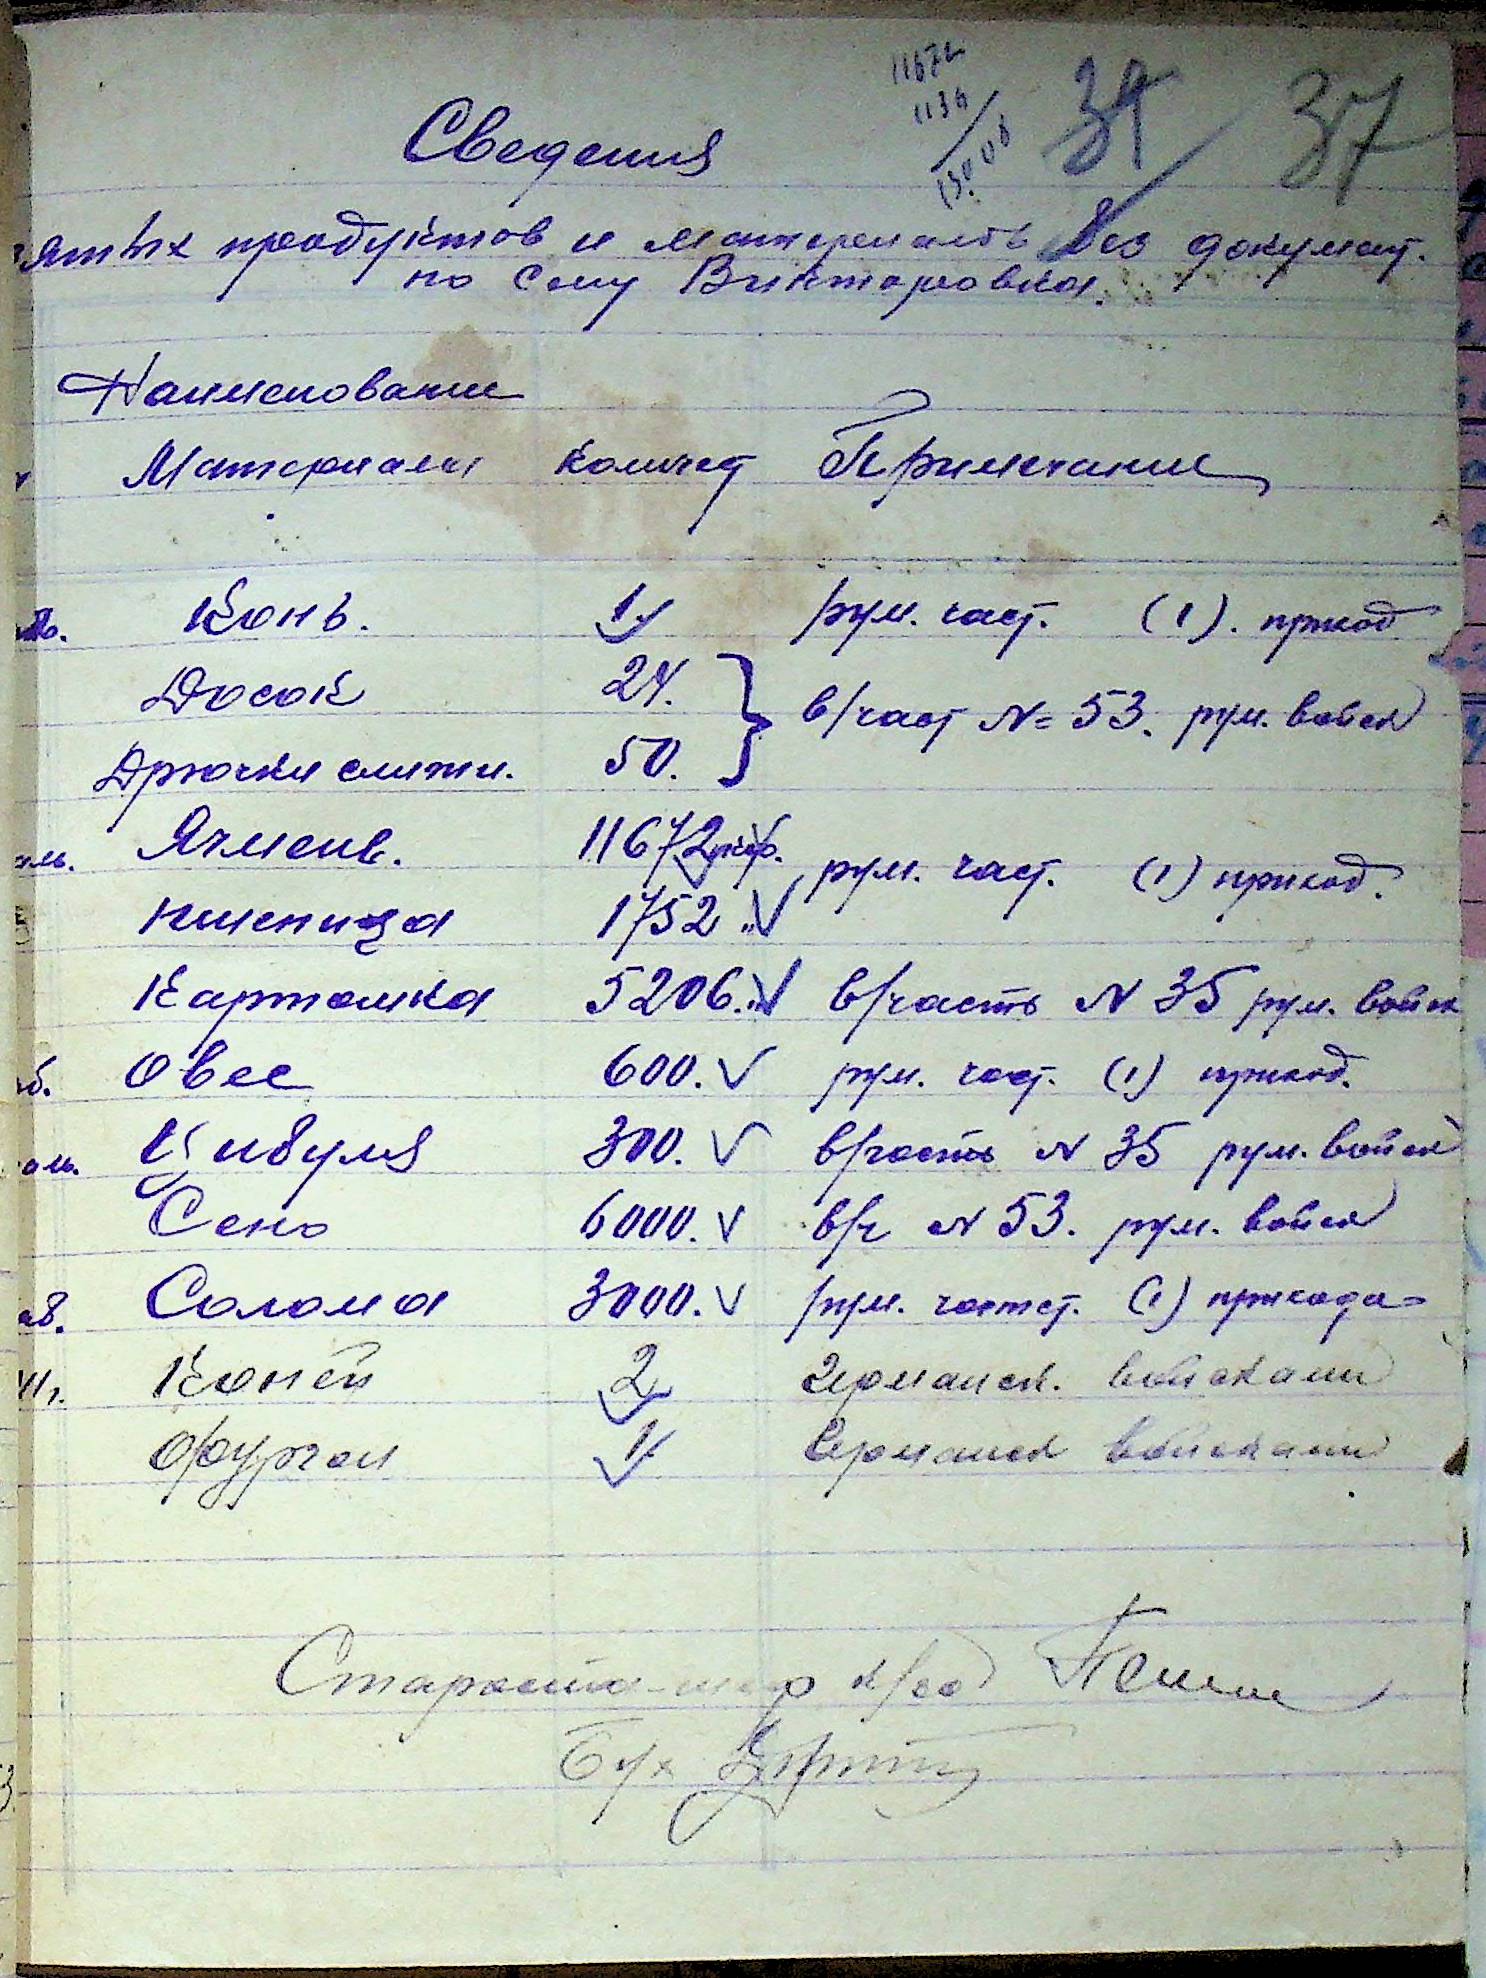 11672
1134
37
Сведения
ятых продуктов и материалов без документ.
по селу Викторовка.
Наименование
Материала Количест Примечание
Конь. 1 рум. част. (1). приход
Досок 24.
в/част № 53. рум. войск
Дрючки 50.
Ячмень. 11672 кгр. рум. част. (1) приход.
пшеница 1752 "
Картошка 5206. " в/часть № 35 рум. войск
овес 600. рум. част. (1) приход.
Цибуля 300. в/часть № 35 рум. войск
Сено 6000. в/ч № 53. рум. войск
Солома 3000. рум. частст. (1) прихода
Коней 2 германск. войсками
фургон 1 германск войсками
Староста
Бух